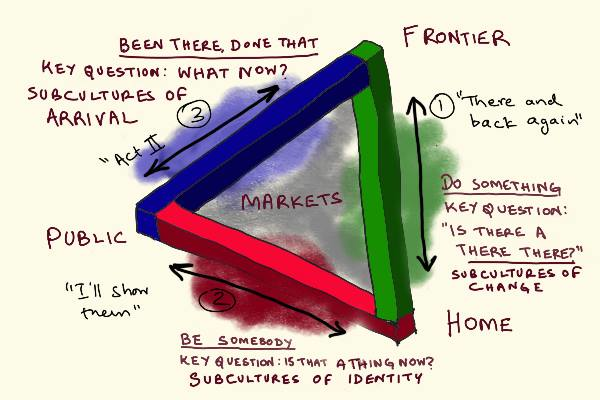 BEEN THERE, DONE THAT
KEY QUESTION: WHAT NOW?
SUBCULTURES OF
ARRIVAL
FRONTIER
3
"Act II
1 "There and
back again"
MARKETS
DO SOMETHING
KEY QUESTION:
"IS THERE A
THERE THERE?"
SUBCULTURES OF
CHANGE
PUBLIC
"I'll show
them"
2
HOME
BE SOMEBODY
KEY QUESTION: IS THAT A THING NOW?
SUBCULTURES OF IDENTITY